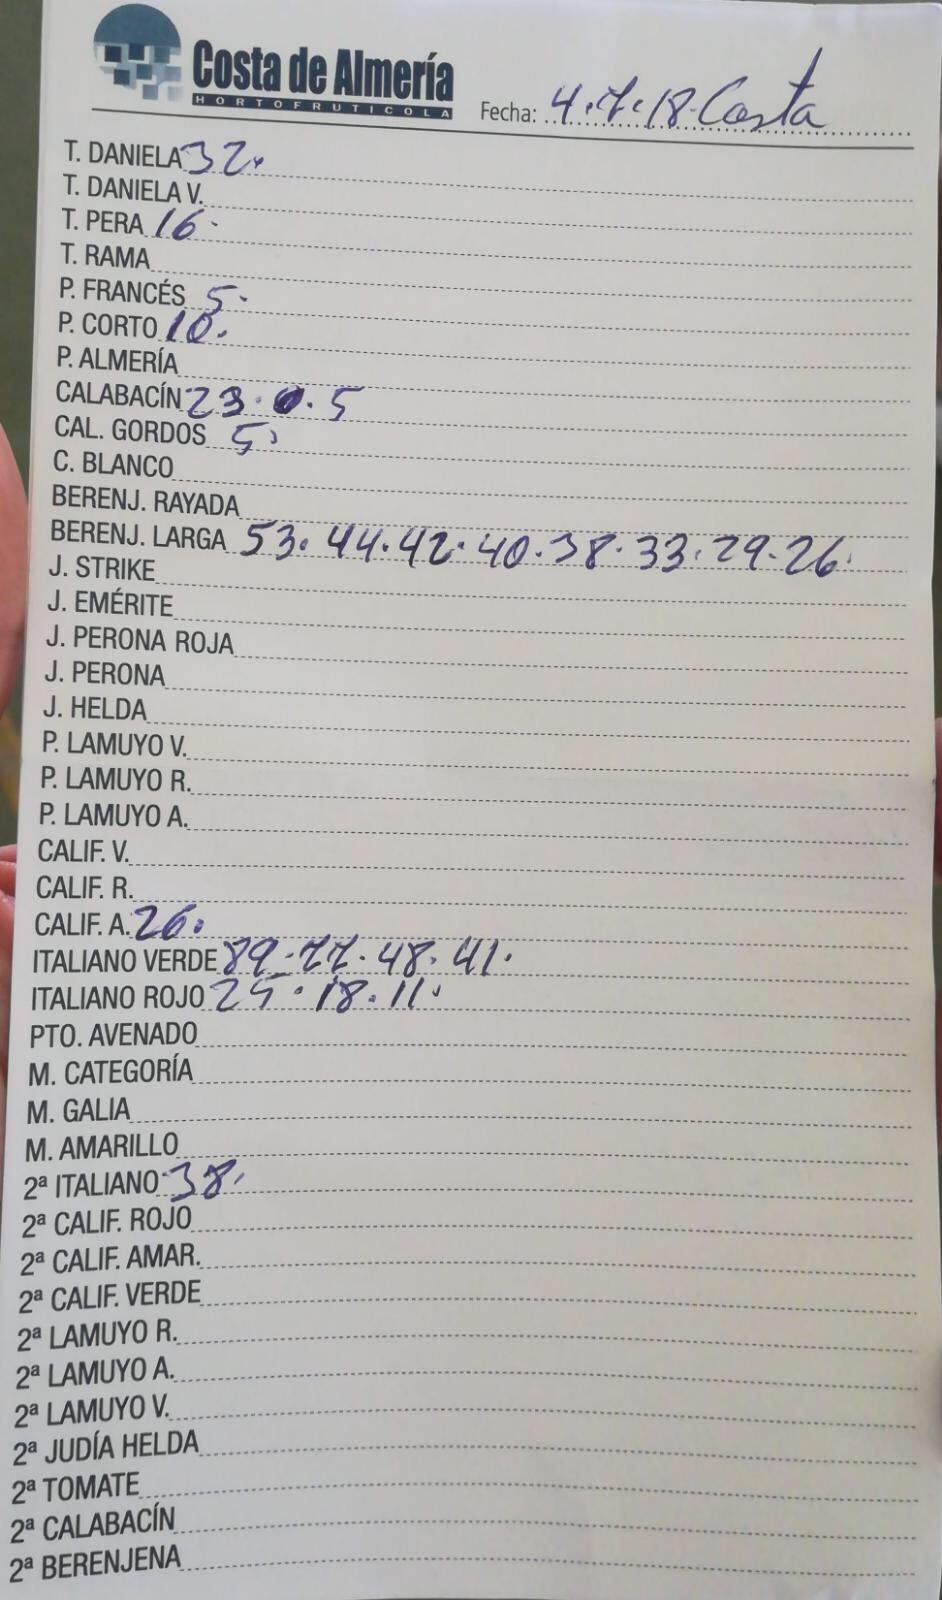 Costa de Almería
HORTOFRUTICOLA
Fecha: 4.7.18 Costa
T. DANIELA 32.
T. DANIELA V.
T. PERA 16.
T. RAMA
P. FRANCÉS 5.
P. CORTO 10.
P. ALMERÍA
CALABACÍN 23. . 5
CAL. GORDOS 5.
C. BLANCO
BERENJ. RAYADA
BERENJ. LARGA 53. 44. 42. 40. 38. 33. 29. 26.
J. STRIKE
J. EMÉRITE
J. PERONA ROJA
J. PERONA
J. HELDA
P. LAMUYO V.
P. LAMUYO R.
P. LAMUYO A.
CALIF. V.
CALIF. R.
CALIF. A. 26.
ITALIANO VERDE 89. 77. 48. 41.
ITALIANO ROJO 25. 18. 11.
PTO. AVENADO
M. CATEGORÍA
M. GALIA
M. AMARILLO
2ª ITALIANO 38.
2ª CALIF. ROJO
2ª CALIF. AMAR.
2ª CALIF. VERDE
2ª LAMUYO R.
2ª LAMUYO A.
2ª LAMUYO V.
2ª JUDÍA HELDA
2ª TOMATE
2ª CALABACÍN
2ª BERENJENA